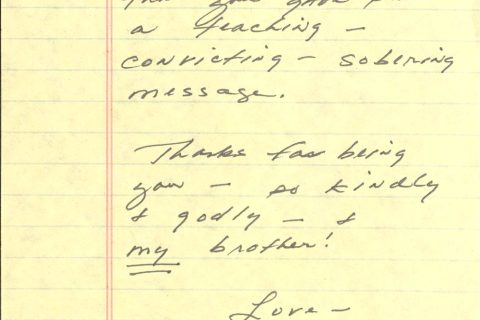 a teaching -
convicting - sobering
message.
Thanks for being
you - so kindly
& godly - &
my brother!
Love -